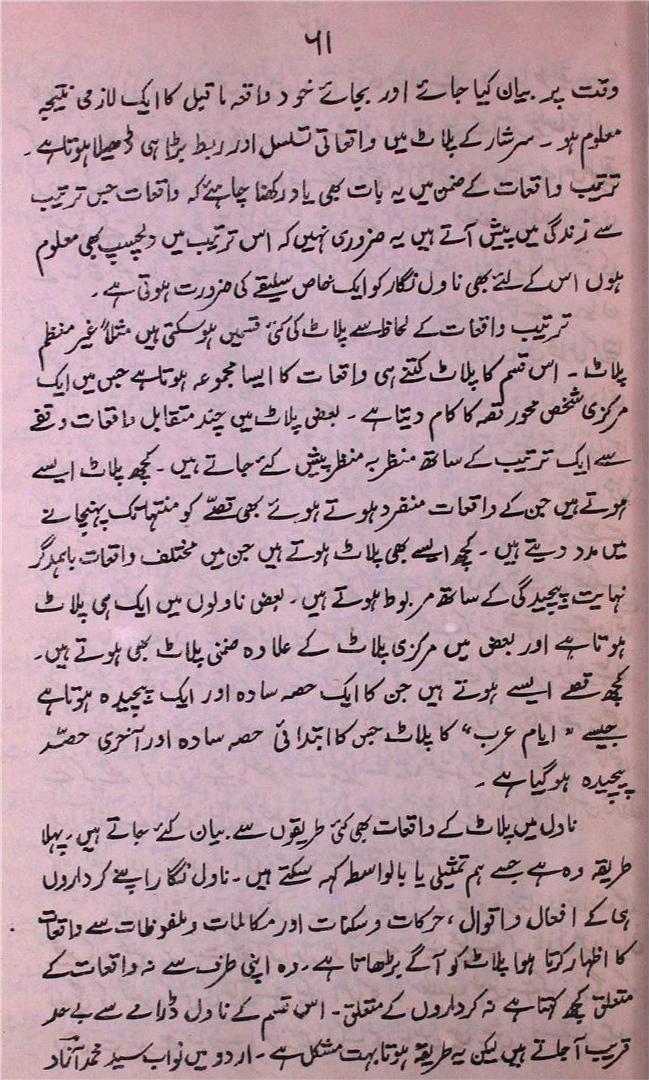 ۶۱
وقت پر بیان کیا جائے اور بجائے خود واقعہ ماقبل کا ایک لازمی نتیجہ
معلوم ہو ۔ سرشار کے پلاٹ میں واقعاتی تسلسل اور ربط بڑا ہی ڈھیلا ہوتا ہے ۔
ترتیب واقعات کے ضمن میں یہ بات بھی یاد رکھنا چاہئے کہ واقعات جس ترتیب
سے زندگی میں پیش آتے ہیں یہ ضروری نہیں کہ اس ترتیب میں دلچسپ بھی معلوم
ہوں اس کے لئے بھی ناول نگار کو ایک خاص سلیقے کی ضرورت ہوتی ہے ۔
ترتیب واقعات کے لحاظ سے پلاٹ کی کئی قسمیں ہو سکتی ہیں مثلاً غیر منظم
پلاٹ ۔ اس قسم کا پلاٹ کتنے ہی واقعات کا ایسا مجموعہ ہوتا ہے جس میں ایک
مرکزی شخص محور قصہ کا کام دیتا ہے ۔ بعض پلاٹ میں چند متقابل واقعات وقفے
سے ایک ترتیب کے ساتھ منظر بہ منظر پیش کئے جاتے ہیں ۔ کچھ پلاٹ ایسے
ہوتے ہیں جن کے واقعات منفرد ہوتے ہوئے بھی قصّے کو منتہا تک پہنچانے
میں مدد دیتے ہیں ۔ کچھ ایسے بھی پلاٹ ہوتے ہیں جن میں مختلف واقعات باہمدگر
نہایت پیچیدگی کے ساتھ مربوط ہوتے ہیں ۔ بعض ناولوں میں ایک ہی پلاٹ
ہوتا ہے اور بعض میں مرکزی پلاٹ کے علاوہ ضمنی پلاٹ بھی ہوتے ہیں ۔
کچھ قصے ایسے ہوتے ہیں جن کا ایک حصہ سادہ اور ایک پیچیدہ ہوتا ہے
جیسے " ایام عرب " کا پلاٹ جس کا ابتدائی حصہ سادہ اور آخری حصّہ
پیچیدہ ہو گیا ہے ۔
ناول میں پلاٹ کے واقعات بھی کئی طریقوں سے بیان کئے جاتے ہیں ۔ پہلا
طریقہ وہ ہے جسے ہم تمثیلی یا بالواسطہ کہہ سکتے ہیں ۔ ناول نگار اپنے کرداروں
ہی کے افعال و اقوال ، حرکات و سکنات اور مکالمات و ملفوظات سے واقعات
کا اظہار کرتا ہوا پلاٹ کو آگے بڑھاتا ہے ۔ وہ اپنی طرف سے نہ واقعات کے
متعلق کچھ کہتا ہے نہ کرداروں کے متعلق ۔ اس قسم کے ناول ڈرامے سے بے حد
قریب آ جاتے ہیں لیکن یہ طریقہ ہوتا بہت مشکل ہے ۔ اردو میں نواب سید محمد آزاد